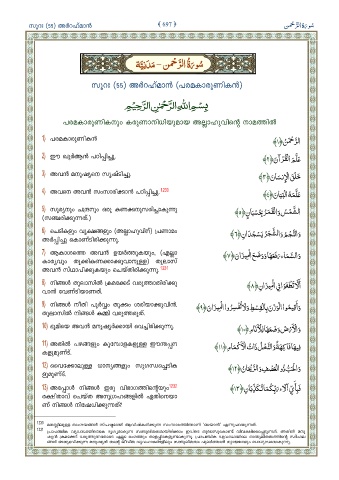 സൂറഃ (55) അർറഹ്‌മാൻ ﴾ 697 ﴿ سُورَةُ الرَّحْمٰنِ
سُورَةُ الرَّحْمٰنِ - مَدَنِيَّة
സൂറഃ (55) അർറഹ്‌മാൻ (പരമകാരുണികൻ)
بِسْمِ اللهِ الرَّحْمٰنِ الرَّحِيْمِ
പരമകാരുണികനും കരുണാനിധിയുമായ അല്ലാഹുവിന്റെ നാമത്തിൽ
1) പരമകാരുണികൻ
الرَّحْمٰنُ ﴿١﴾
2) ഈ ഖുർആൻ പഠിപ്പിച്ചു.
عَلَّمَ الْقُرْآنَ ﴿٢﴾
3) അവൻ മനുഷ്യനെ സൃഷ്ടിച്ചു.
خَلَقَ الْإِنْسَانَ ﴿٣﴾
4) അവനെ അവൻ സംസാരിക്കാൻ പഠിപ്പിച്ചു.
عَلَّمَهُ الْبَيَانَ ﴿٤﴾
5) സൂര്യനും ചന്ദ്രനും ഒരു കണക്കനുസരിച്ചാകുന്നു
(സഞ്ചരിക്കുന്നത്.)
الشَّمْسُ وَالْقَمَرُ بِحُسْبَانٍ ﴿٥﴾
6) ചെടികളും വൃക്ഷങ്ങളും (അല്ലാഹുവിന്) പ്രണാമം
അർപ്പിച്ചു കൊണ്ടിരിക്കുന്നു.
وَالنَّجْمُ وَالشَّجَرُ يَسْجُدَانِ ﴿٦﴾
7) ആകാശത്തെ അവൻ ഉയർത്തുകയും, (എല്ലാ
കാര്യവും തൂക്കിക്കണക്കാക്കുവാനുള്ള) തുലാസ്
അവൻ സ്ഥാപിക്കുകയും ചെയ്തിരിക്കുന്നു.
وَالسَّمَاءَ رَفَعَهَا وَوَضَعَ الْمِيزَانَ ﴿٧﴾
8) നിങ്ങൾ തുലാസിൽ ക്രമക്കേട് വരുത്താതിരിക്കു
വാൻ വേണ്ടിയാണത്.
أَلَّا تَطْغَوْا فِي الْمِيزَانِ ﴿٨﴾
9) നിങ്ങൾ നീതി പൂർവ്വം തൂക്കം ശരിയാക്കുവിൻ.
തുലാസിൽ നിങ്ങൾ കമ്മി വരുത്തരുത്.
وَأَقِيمُوا الْوَزْنَ بِالْقِسْطِ وَلَا تُخْسِرُوا الْمِيزَانَ ﴿٩﴾
10) ഭൂമിയെ അവൻ മനുഷ്യർക്കായി വെച്ചിരിക്കുന്നു.
وَالْأَرْضَ وَضَعَهَا لِلْأَنَامِ ﴿١٠﴾
11) അതിൽ പഴങ്ങളും കൂമ്പോളകളുള്ള ഈന്തപ്പന
കളുമുണ്ട്.
فِيهَا فَاكِهَةٌ وَالنَّخْلُ ذَاتُ الْأَكْمَامِ ﴿١١﴾
12) വൈക്കോലുള്ള ധാന്യങ്ങളും സുഗന്ധച്ചെടിക
ളുമുണ്ട്.
وَالْحَبُّ ذُو الْعَصْفِ وَالرَّيْحَانُ ﴿١٢﴾
13) അപ്പോൾ നിങ്ങൾ ഇരു വിഭാഗത്തിന്റെയും
രക്ഷിതാവ് ചെയ്ത അനുഗ്രഹങ്ങളിൽ ഏതിനെയാ
ണ് നിങ്ങൾ നിഷേധിക്കുന്നത്?
فَبِأَيِّ آلَاءِ رَبِّكُمَا تُكَذِّبَانِ ﴿١٣﴾